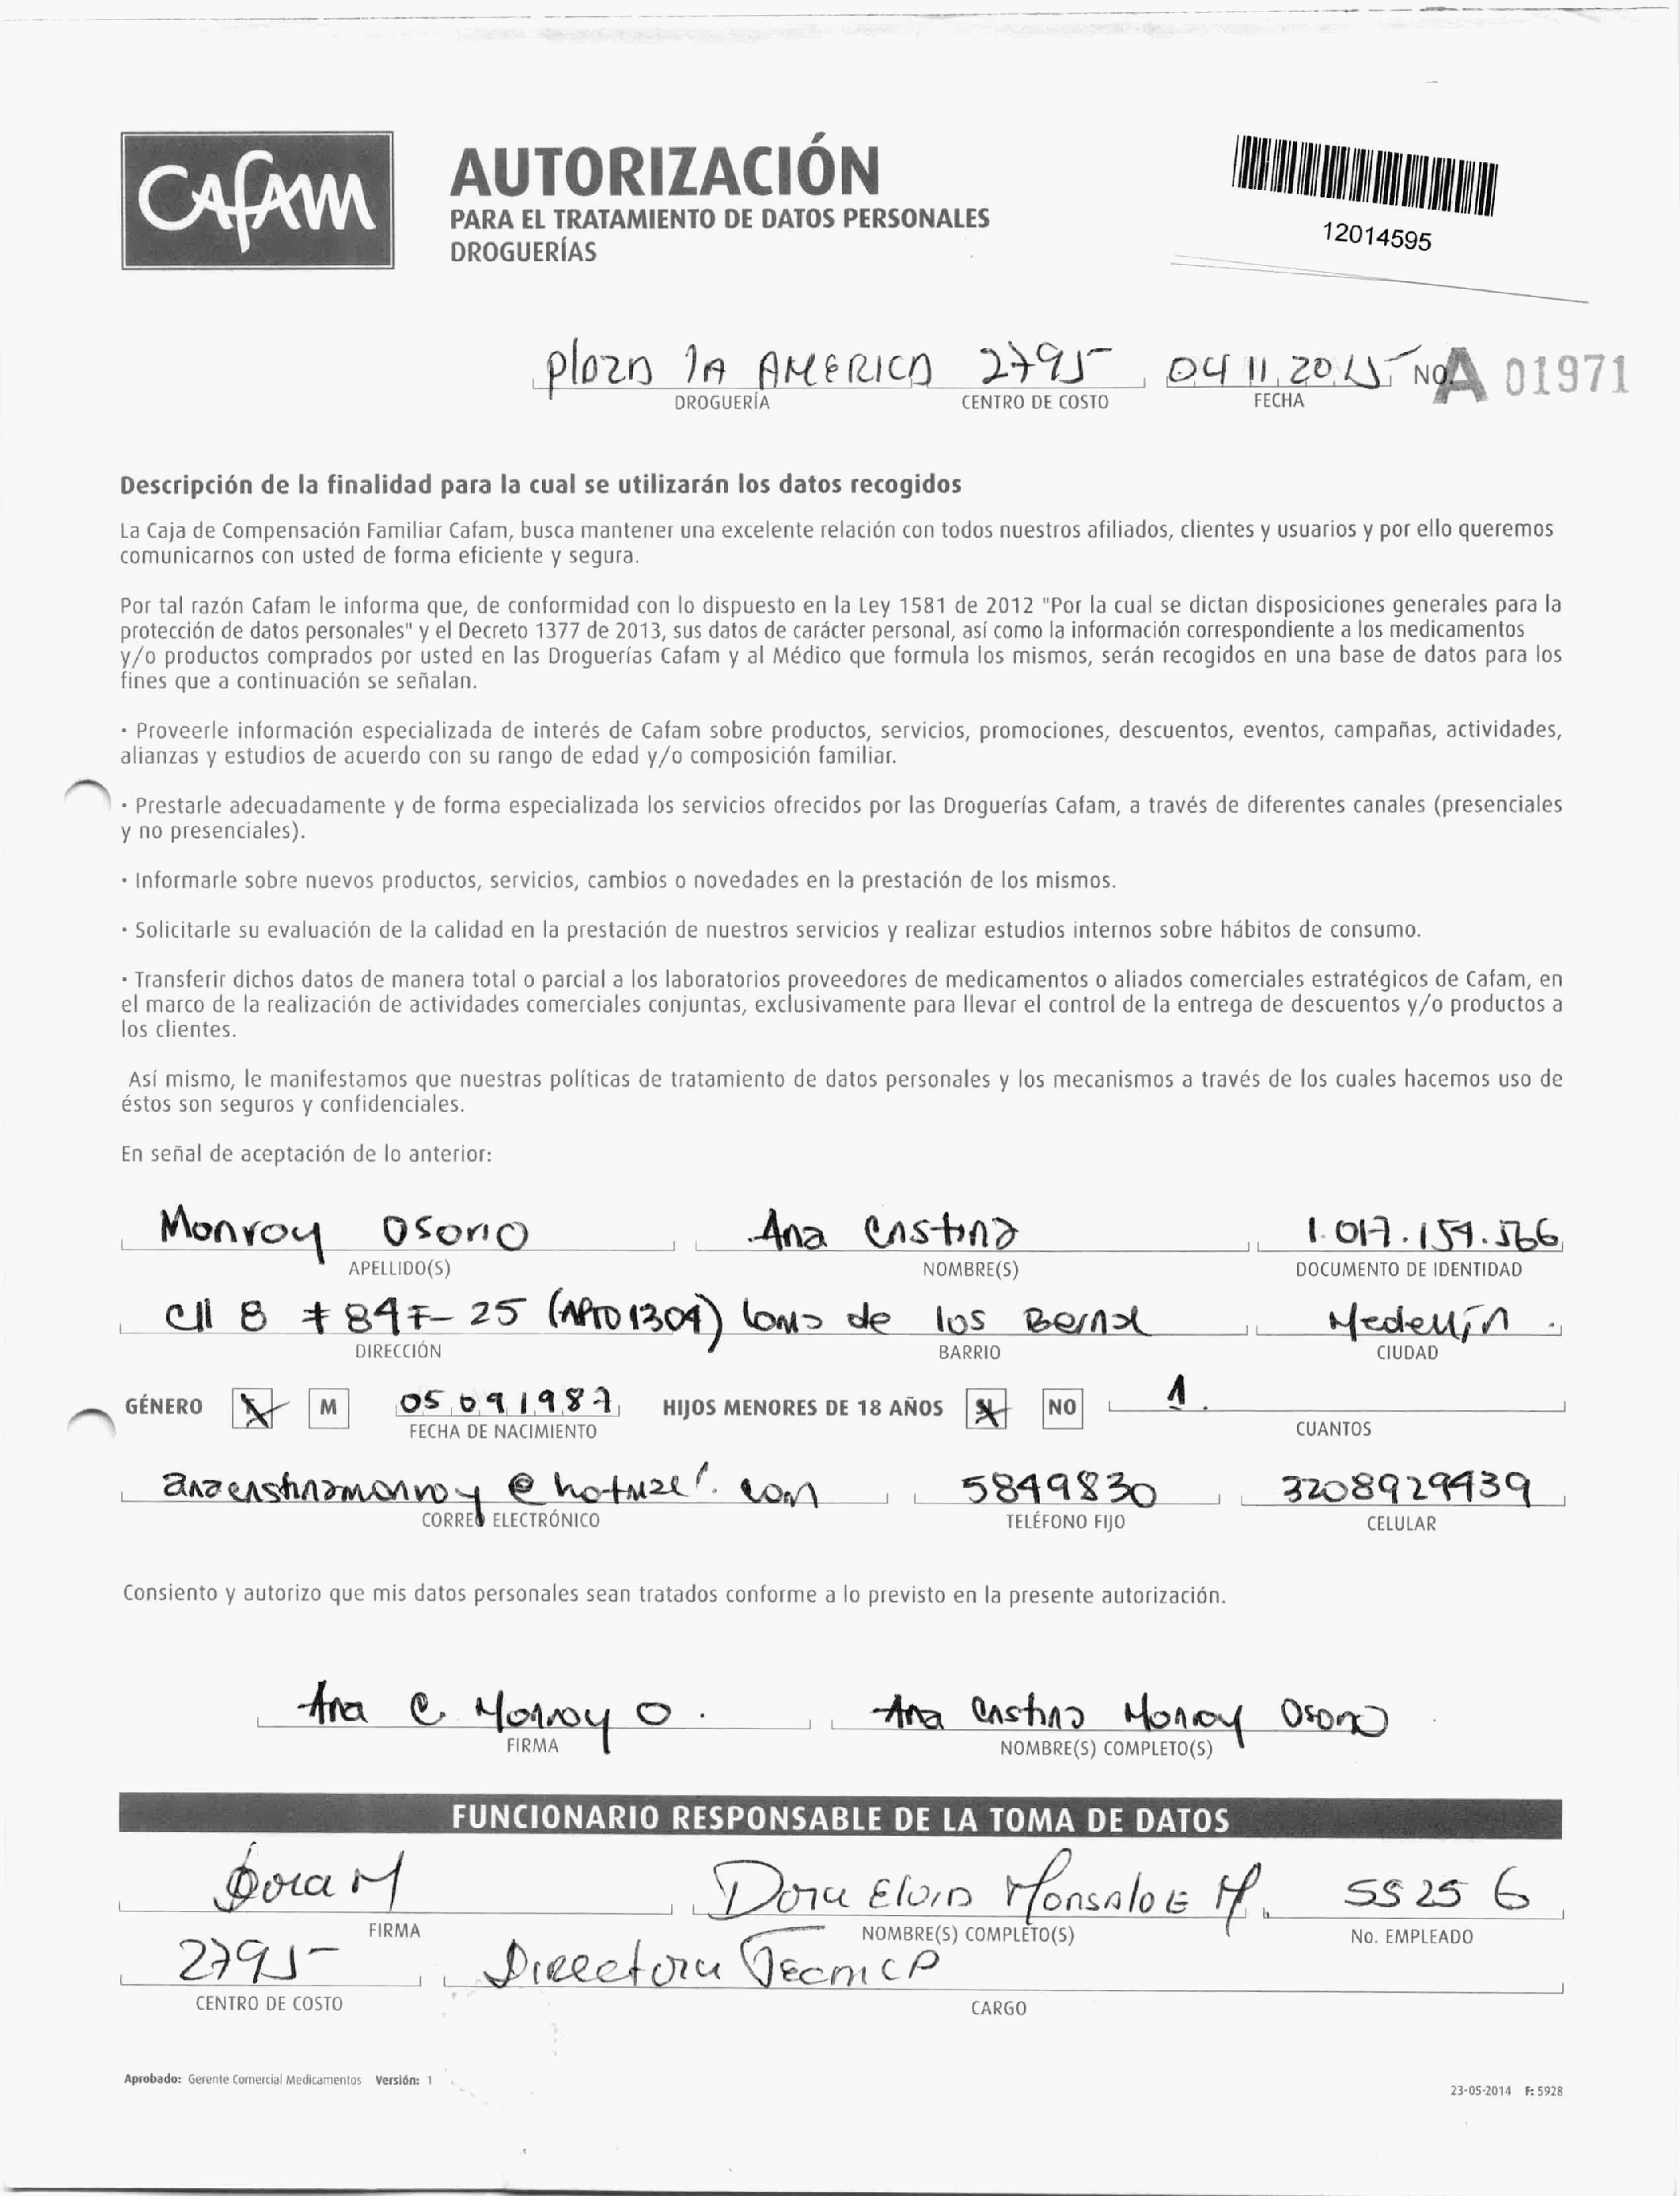 CAFAM
AUTORIZACIÓN
PARA EL TRATAMIENTO DE DATOS PERSONALES
DROGUERÍAS
12014595
Plaza la AMERICA 2795 04 11 2015 No. A 01971
DROGUERÍA CENTRO DE COSTO FECHA
Descripción de la finalidad para la cual se utilizarán los datos recogidos
La Caja de Compensación Familiar Cafam, busca mantener una excelente relación con todos nuestros afiliados, clientes y usuarios y por ello queremos
comunicarnos con usted de forma eficiente y segura.
Por tal razón Cafam le informa que, de conformidad con lo dispuesto en la Ley 1581 de 2012 "Por la cual se dictan disposiciones generales para la
protección de datos personales" y el Decreto 1377 de 2013, sus datos de carácter personal, así como la información correspondiente a los medicamentos
y/o productos comprados por usted en las Droguerías Cafam y al Médico que formula los mismos, serán recogidos en una base de datos para los
fines que a continuación se señalan.
· Proveerle información especializada de interés de Cafam sobre productos, servicios, promociones, descuentos, eventos, campañas, actividades,
alianzas y estudios de acuerdo con su rango de edad y/o composición familiar.
· Prestarle adecuadamente y de forma especializada los servicios ofrecidos por las Droguerías Cafam, a través de diferentes canales (presenciales
y no presenciales).
· Informarle sobre nuevos productos, servicios, cambios o novedades en la prestación de los mismos.
· Solicitarle su evaluación de la calidad en la prestación de nuestros servicios y realizar estudios internos sobre hábitos de consumo.
· Transferir dichos datos de manera total o parcial a los laboratorios proveedores de medicamentos o aliados comerciales estratégicos de Cafam, en
el marco de la realización de actividades comerciales conjuntas, exclusivamente para llevar el control de la entrega de descuentos y/o productos a
los clientes.
Así mismo, le manifestamos que nuestras políticas de tratamiento de datos personales y los mecanismos a través de los cuales hacemos uso de
éstos son seguros y confidenciales.
En señal de aceptación de lo anterior:
Monroy Osorio Ana Cristina 1.017.159.566
APELLIDO(S) NOMBRE(S) DOCUMENTO DE IDENTIDAD
Cll 8 # 84F-25 (APTO 1304) Loma de los Bernal Medellín.
DIRECCIÓN BARRIO CIUDAD
GÉNERO X M 05 09 1987 HIJOS MENORES DE 18 AÑOS X NO 1.
FECHA DE NACIMIENTO CUANTOS
anacristinamonroy@hotmail.com 5849830 3208929439
CORREO ELECTRÓNICO TELÉFONO FIJO CELULAR
Consiento y autorizo que mis datos personales sean tratados conforme a lo previsto en la presente autorización.
Ana C. Monroy O. Ana Cristina Monroy Osorio
FIRMA NOMBRE(S) COMPLETO(S)
FUNCIONARIO RESPONSABLE DE LA TOMA DE DATOS
Dora M Dora Elvia Monsalve M. 55256
FIRMA NOMBRE(S) COMPLETO(S) No. EMPLEADO
2795 Directora Tecnica
CENTRO DE COSTO CARGO
Aprobado: Gerente Comercial Medicamentos Versión: 1
23-05-2014 F: 5928